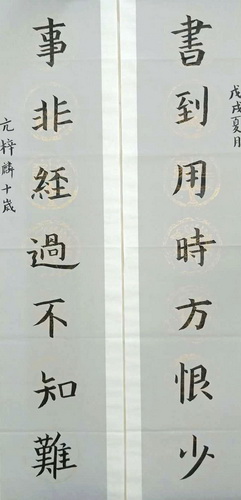 戊戌夏月
書到用時方恨少
事非經過不知難
亢梓麟十歲